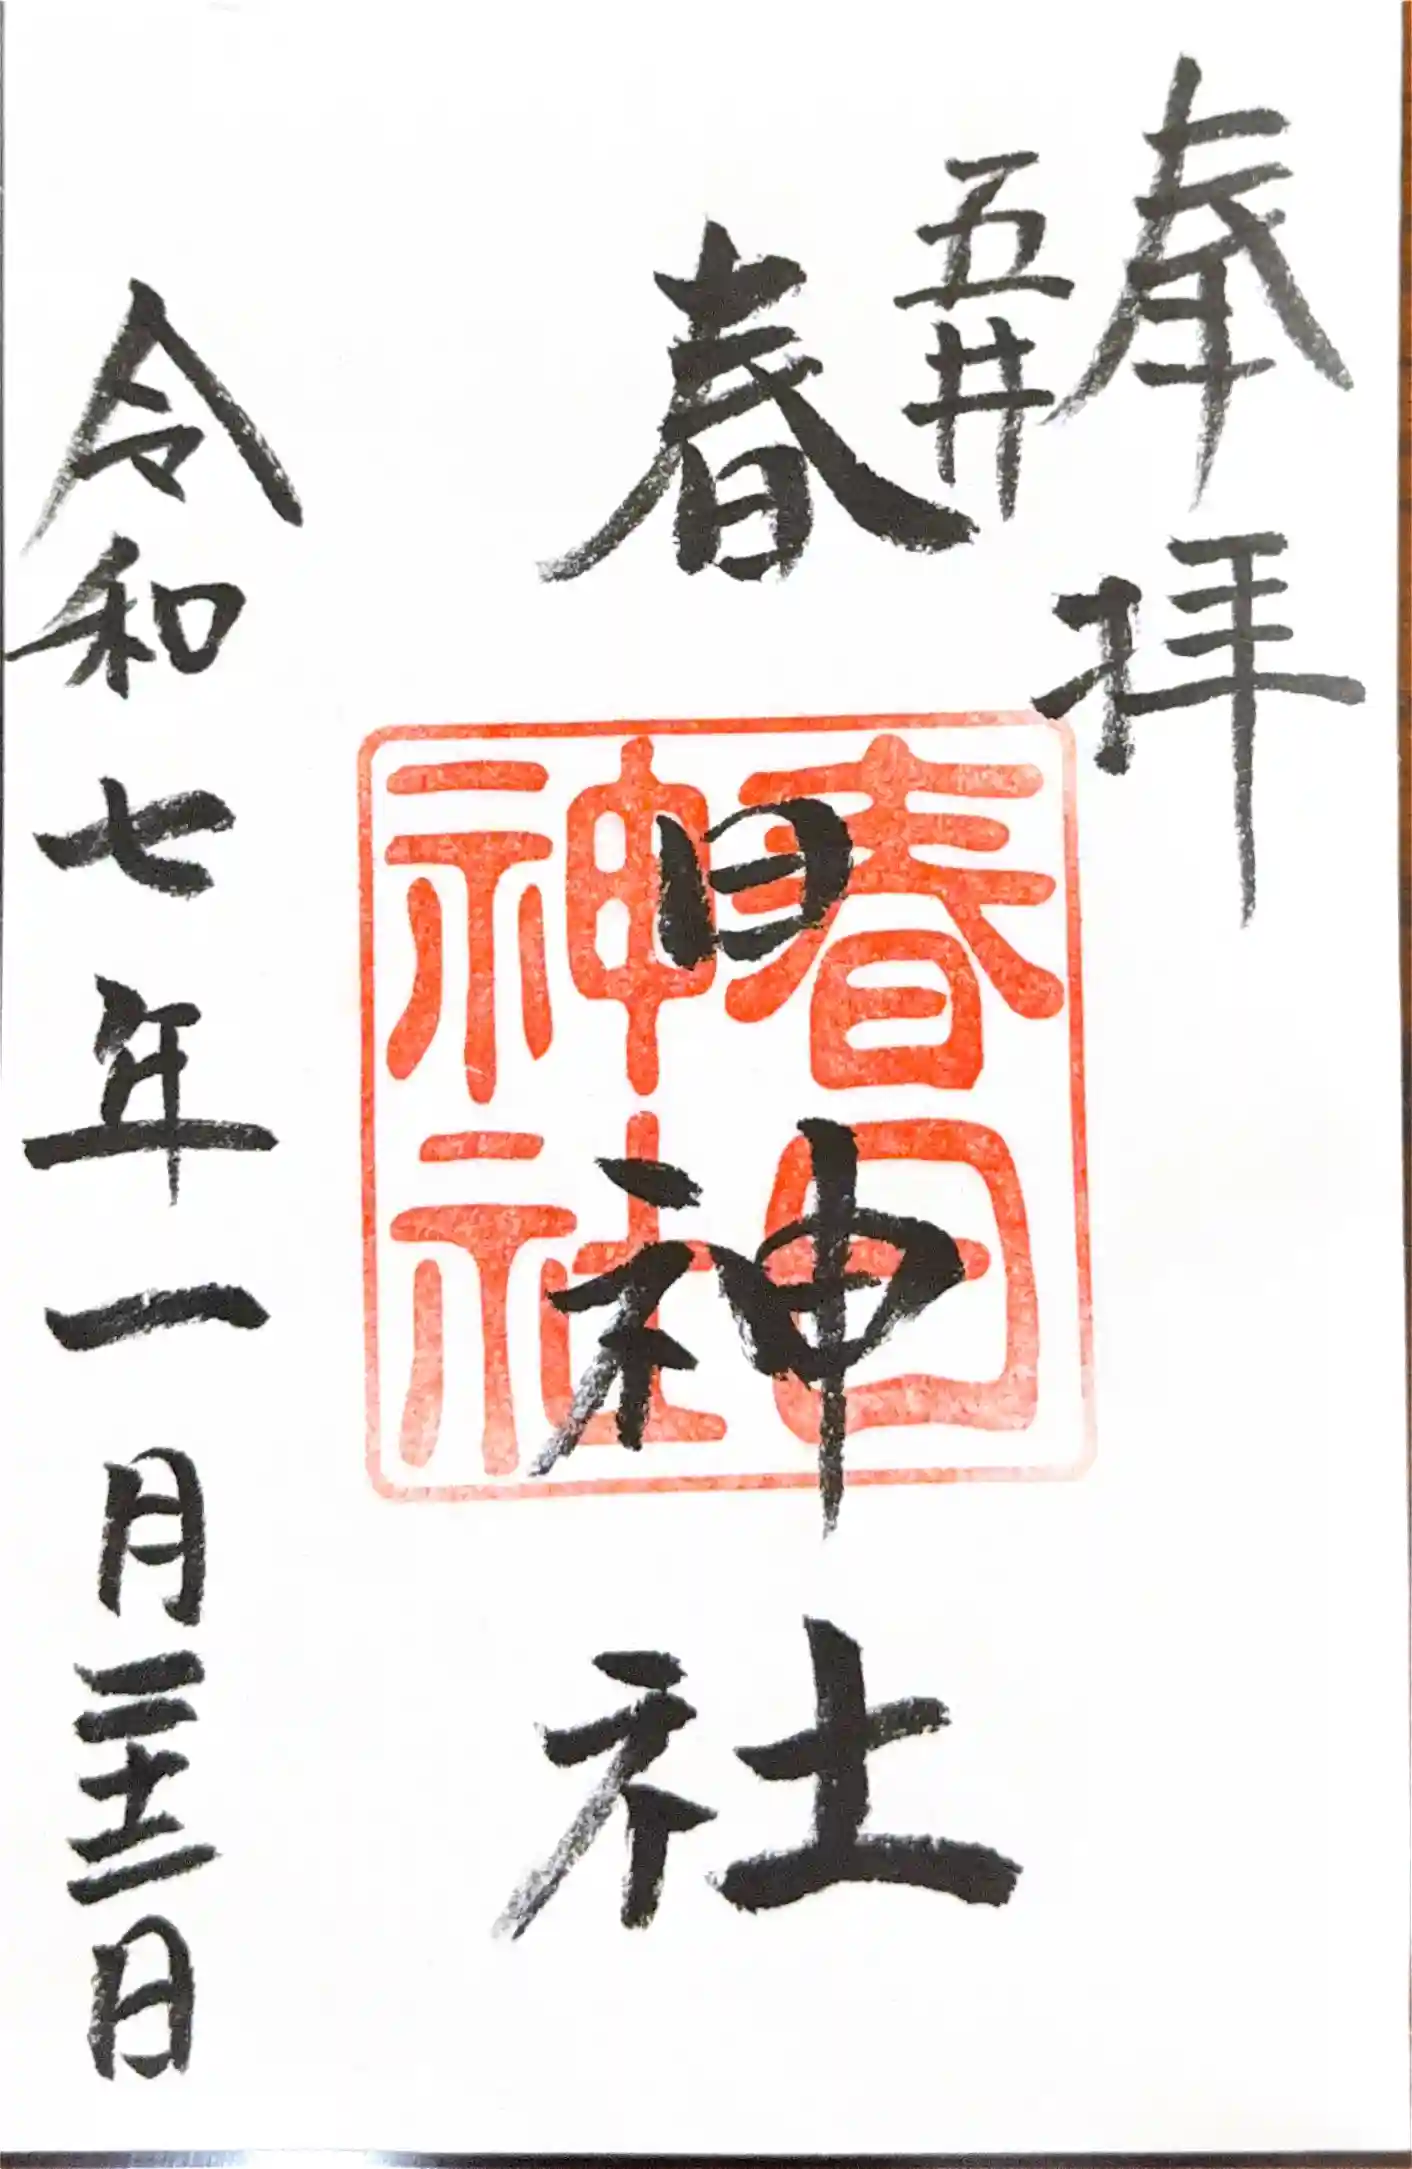 奉拝
五井
春日神社
春日
神社
令和七年一月二十二日